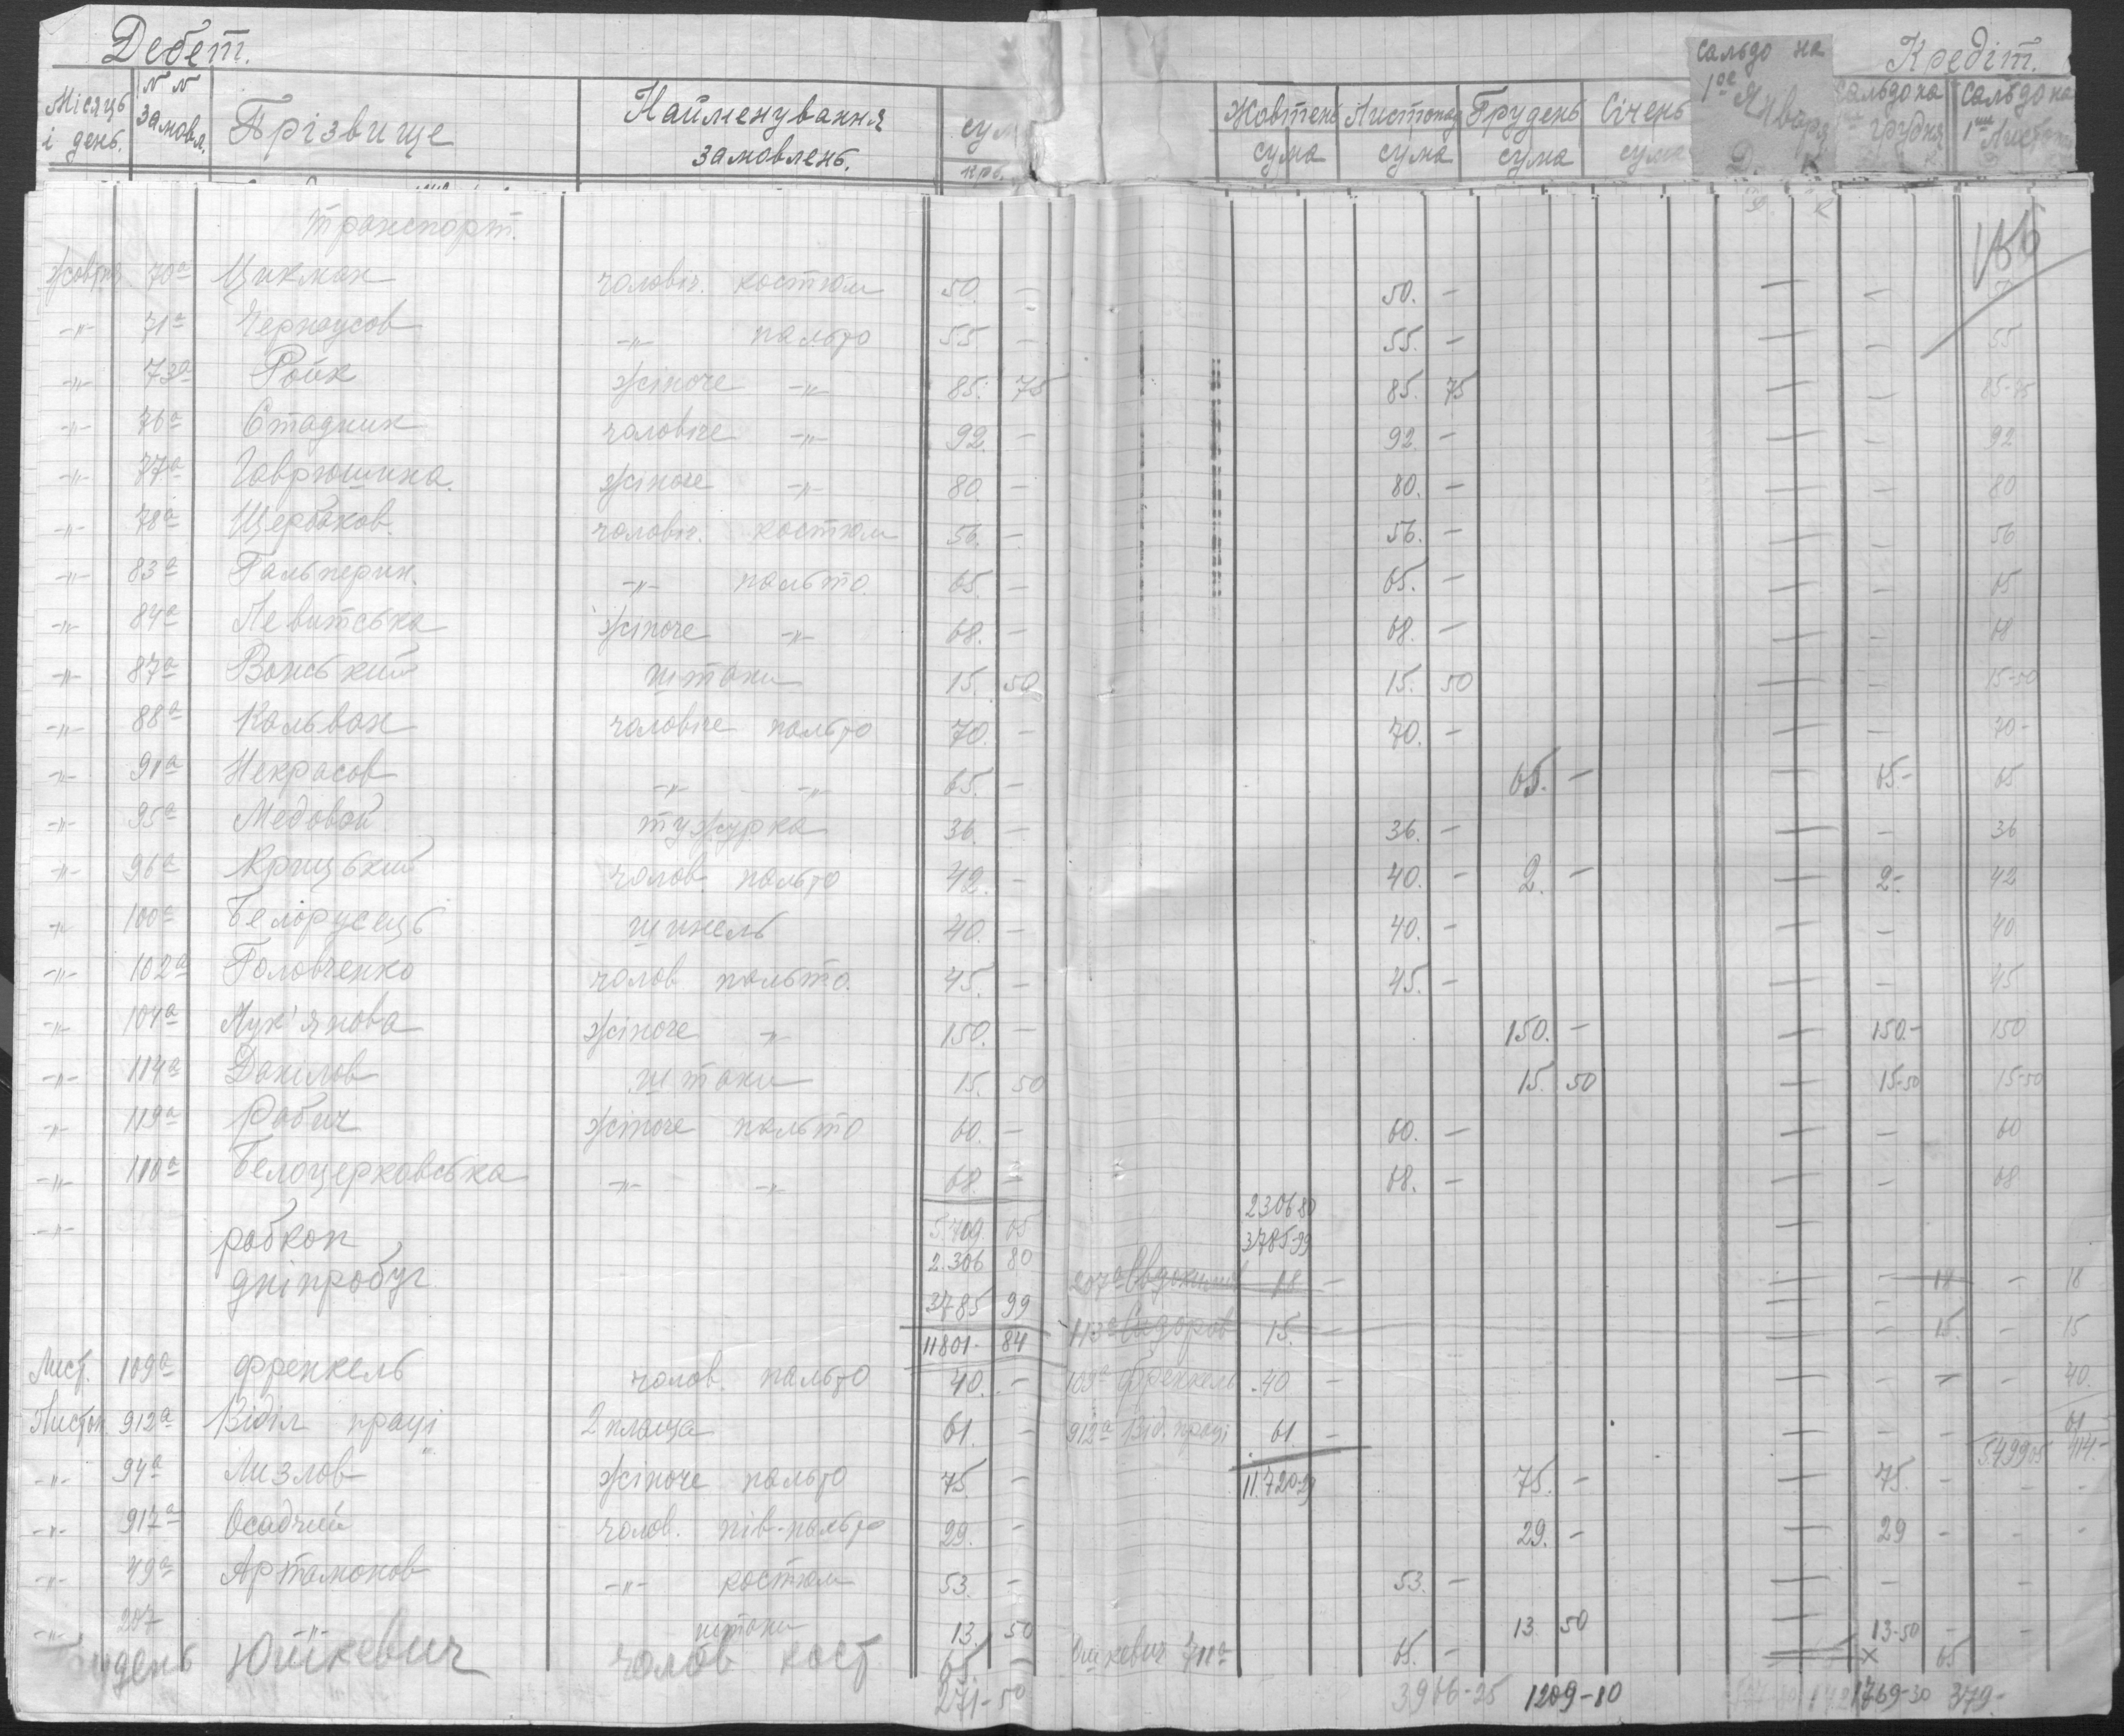 Дебет. Кредіт.
Місяць і день. N N замовл. Прізвище Найменування замовлень. сум крб. Жовтень сума Листопад сума Грудень сума Січень сума Сальдо на 1ое Января Д. К Сальдо на грудня Сальдо на 1ше Листоп
транспорт.
Жовтня 70а Цикман чоловіч. костюм 50. – 50. – – –
-"- 71а Черноусов -"- пальто 55 – 55. – – – 55
-"- 73а Ройк жіноче -"- 85. 75 85. 75 – – 85-75
-"- 76а Стадник чоловіче -"- 92 – 92. – – – 92
-"- 77а Гаврюшина. жіноче -"- 80. – 80. – – – 80
-"- 78а Щербаков. чоловіч. костюм 56. – 56. – – – 56
-"- 83а Гальперин. -"- пальто. 65. – 65. – – – 65
-"- 84а Левитська жіноче -"- 68. – 68. – – – 68
-"- 87а Вонський штани 15. 50 15. 50 – – 15-50
-"- 88а Кальван чоловіче пальто 70. – 70. – – – 70-
-"- 91а Некрасов -"- -"- 65. – 65. – – 65- 65
-"- 95а Медовой тужурка 36. – 36. – – – 36
-"- 96а Крицький чолов. пальто 42. – 40. – 2. – – 2- 42
-"- 100а Белорусець шинель 40. – 40. – – – 40
-"- 102а Головченко чолов пальто. 45. – 45. – – – 45
-"- 104а Лук'янова жіноче -"- 150. – 150. – – 150.- 150
-"- 114а Данілов штани 15. 50 15. 50 – 15-50 15-50
-"- 119а Рабич жіноче пальто 60. – 60. – – – 60
-"- 110а Белоцерковська -"- -"- 68. – 68. – – – 68
-"- робкоп 5.709. 05 2306 80
2.306 80 3785-99
дніпробуг 3785 99 207а Євдокимов 18 – – 18 – 18
11801. 84 113а Сидоров 15. – – 15. – 15
Лист. 109а Френкель чолов. пальто 40. – 109а Френкель 40 – – – – 40.
Листоп. 912а Відділ праці 2 плаща 61. – 912а Від. праці 61 – – – 61
5.499 05 114-
-"- 94а Лизлов жіноче пальто 75. – 11.720-29 75. – – 75. – – -
-"- 917а Осадчий чолов. пів-пальто 29. – 29. – – 29 – – -
-"- 49а Артамонов -"- костюм 53. – 53. – – – –
-"- 207 -"- штани 13. 50 13 50 – 13-50 – –
удень Юшкевич чолов кост 65. – Юшкевич 711а 65. – х 65
271-50 3906-25 1209-10 1769-30 379-